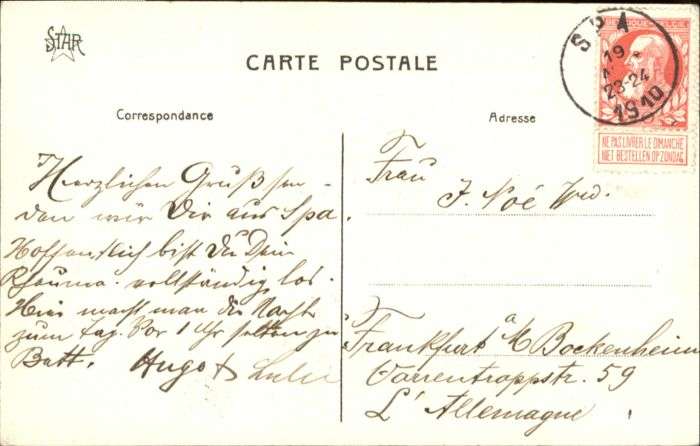 STAR
CARTE POSTALE
Correspondance
Herzlichen Gruß sen-
den wir Dir aus Spa.
Hoffentlich bist Du Dein
Rheuma vollständig los.
Hier macht man die Nacht
zum Tag. Vor 1 Uhr selten zu
Bett. Hugo &
Adresse
Frau
J. Noé Wwe.
Frankfurt a/M Bockenheim
Varrentrappstr. 59
L'Allemagne
SPA
19
23-24
1910
NE PAS LIVRER LE DIMANCHE
NIET BESTELLEN OP ZONDAG